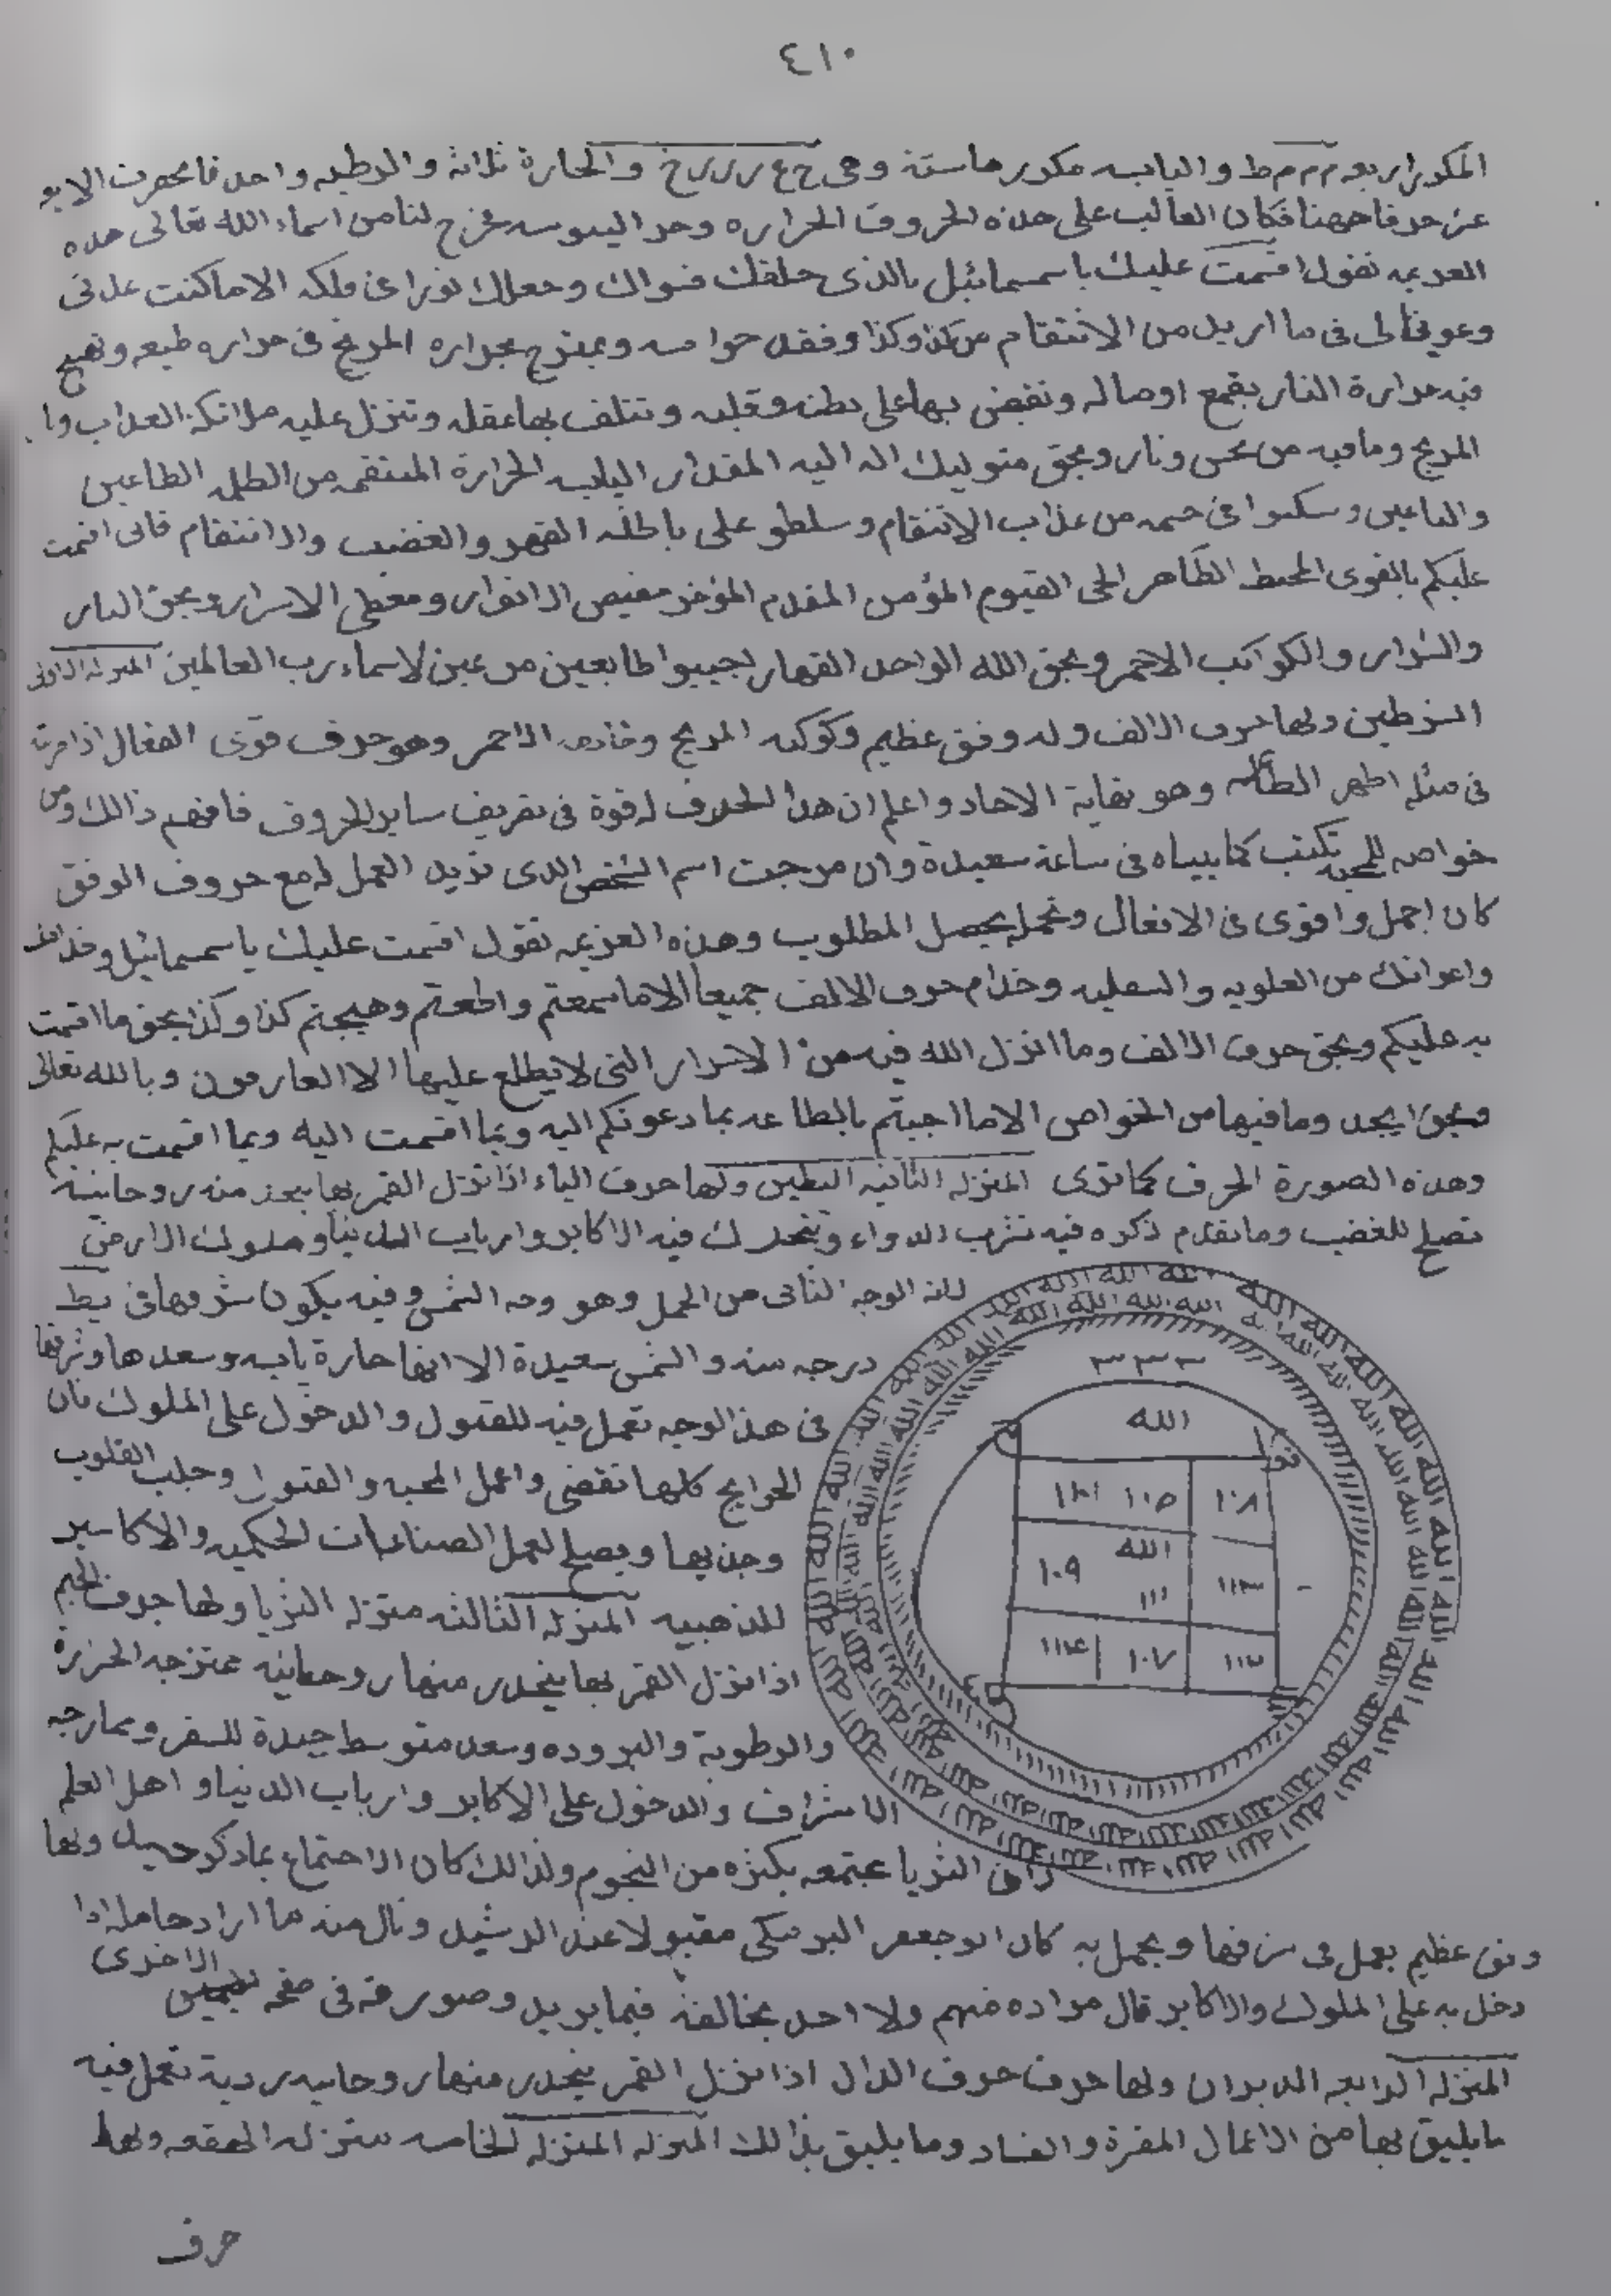 ٤١٠
المكور اربعه م م م ط واليابسه مكورها ستة وهى ح ع ر ر ر خ والحارة ثلاثة والرطبه واحد فانحصرت الاربعه
عشر حرفا ههنا فكان الغالب على هذه الحروف الحراره وحر اليبوسه يخرج لنا من اسماء الله تعالى هذه
العزيمه تقول اقسمت عليك يا سمسمائيل بالذى خلقك فسواك وجعلك نورا فى فلكه الا ما كنت عونى
وعوينا لى فى ما اريد من الانتقام من كذا وكذا وفقد حواسه ويمتزج بحراره المريخ فى حراره طبعه وتهيج
فيه حرارة النار بقمع اوصاله وتقبض بها على بطنه وقلبه وتتلف بها عقله وتنزل عليه ملائكة العذاب و
المريخ وما فيه من نحس ونار وبحق متوليك اله اليه المقدار اليابسه الحرارة المنتقمه من الظلمه الطاغين
والباغين وسكنوا فى جسمه من عذاب الانتقام وسلطو على باطله القهر والغضب والانتقام فانى اقسمت
عليكم بالقوى المحيط الظاهر الحى القيوم المؤمن المقدم المؤخر مفيض الانوار ومعطى الاسرار وبحق النار
والشرار والكواكب الاحمر وبحق الله الواحد القهار اجيبوا طايعين مرعبين لاسماء رب العالمين المنزله الاولى
الشرطين ولها حرف الالف وله وفق عظيم وكوكبه المريخ وخادمه الاحمر وهو حرف قوى الفعال اذا ضربته
فى مثله اظهر الطاله وهو نهاية الاحاد واعلم ان هذا الحرف له قوة فى تصريف ساير الحروف فافهم ذالك ومن
خواصه للمحبه تكتب كما بيناه فى ساعة سعيدة وان مزجت اسم الشخص الذى تريد العمل له مع حروف الوفق
كان اجمل واقوى فى الافعال وتحمله يحصل المطلوب وهذه العزيمه تقول اقسمت عليك يا سمسمائيل وخدامك
واعوانك من العلويه والسفليه وخدام حرف الالف جميعا الا ما سمعتم واطعتم وهيجتم كذا وكذا بحق ما اقسمت
به عليكم وبحق حرف الالف وما انزل الله فيه من الاسرار التى لا يطلع عليها الا العارفون وبالله تعالى
وبحق ابجد وما فيها من الخواص الا ما اجبتم بالطاعه بما دعوتكم اليه وبما اقسمت اليه وبما اقسمت به عليكم
وهذه الصورة الحرف كما ترى المنزله الثانيه البطين ولها حرف الباء اذا نزل القمر بها ينحدر منه روحانيته
تصلح للغضب وما تقدم ذكره فيه تشرب الدواء ويتحدث فيه الاكابر وارباب الدنيا وملوك الارض
لانه الوجه الثانى من الحمل وهو وجه الشمس وفيه يكون شرفها فى يط
درجه منه والشمس سعيدة الا انها حارة يابسه وسعدها وشرفها
فى هذا الوجه تعمل فيه للقبول والدخول على الملوك فان
الحوايج كلها تقضى واعمل المحبه والقبول وجلب القلوب
وجذبها ويصلح لعمل الصناعات الحكميه والاكاسير
للذهبيه المنزله الثالثه منزله الثريا ولها حرف الجيم
اذا نزل القمر بها ينحدر منها روحانيه ممتزجه الحرارة
والرطوبة والبروده وسعد متوسط جيدة للسفر وممازجه
الاشراف والدخول على الاكابر وارباب الدنيا واهل العلم
الثريا مجتمعه بكثره من النجوم ولذالك كان الاجتماع بما ذكر جيد ولها
وفق عظيم يعمل فى شرفها ويحمل به كان ابو جعفر البرمكى مقبولا عند الرشيد ونال منه ما اراد حامله اذا
دخل به على الملوك والاكابر قال مراده منهم ولا احد يخالفه فيما يريد وصورته فى صفحه الاخرى
المنزله الرابعه الدبران ولها حرف حرف الدال اذا نزل القمر ينحدر منها روحانيه ردية تعمل فيه
ما يليق بها من الاعمال المضرة والفساد وما يليق بذالك المنزله المنزله الخامسه منزله الهقعه ولها
حرف
الله
١٠٨ ١١٥
١١٣ الله ١١١ ١٠٩
١١٢ ١٠٧ ١١٤